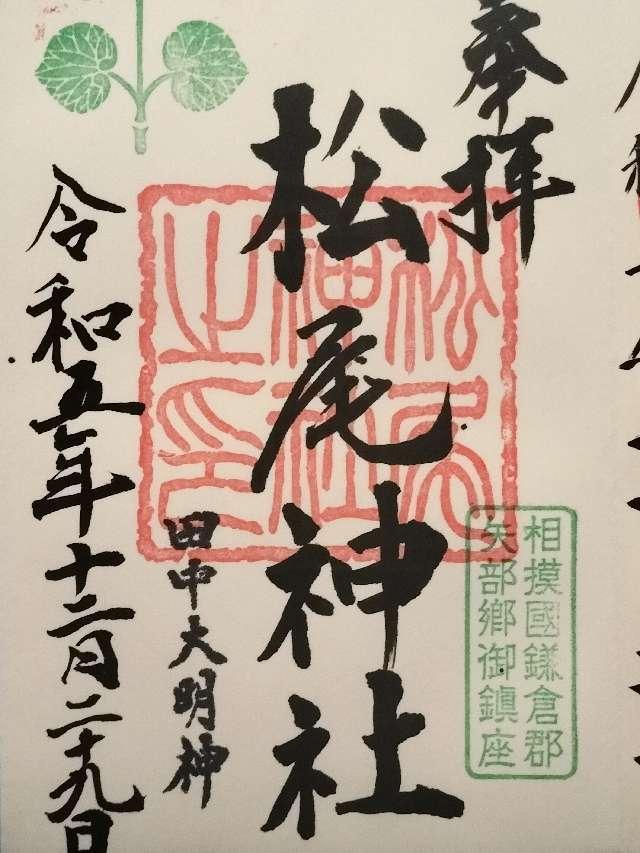 奉拝
松尾神社
松尾
神社
之印
相摸國鎌倉郡
矢部郷御鎮座
田中大明神
令和五年十二月二十九日